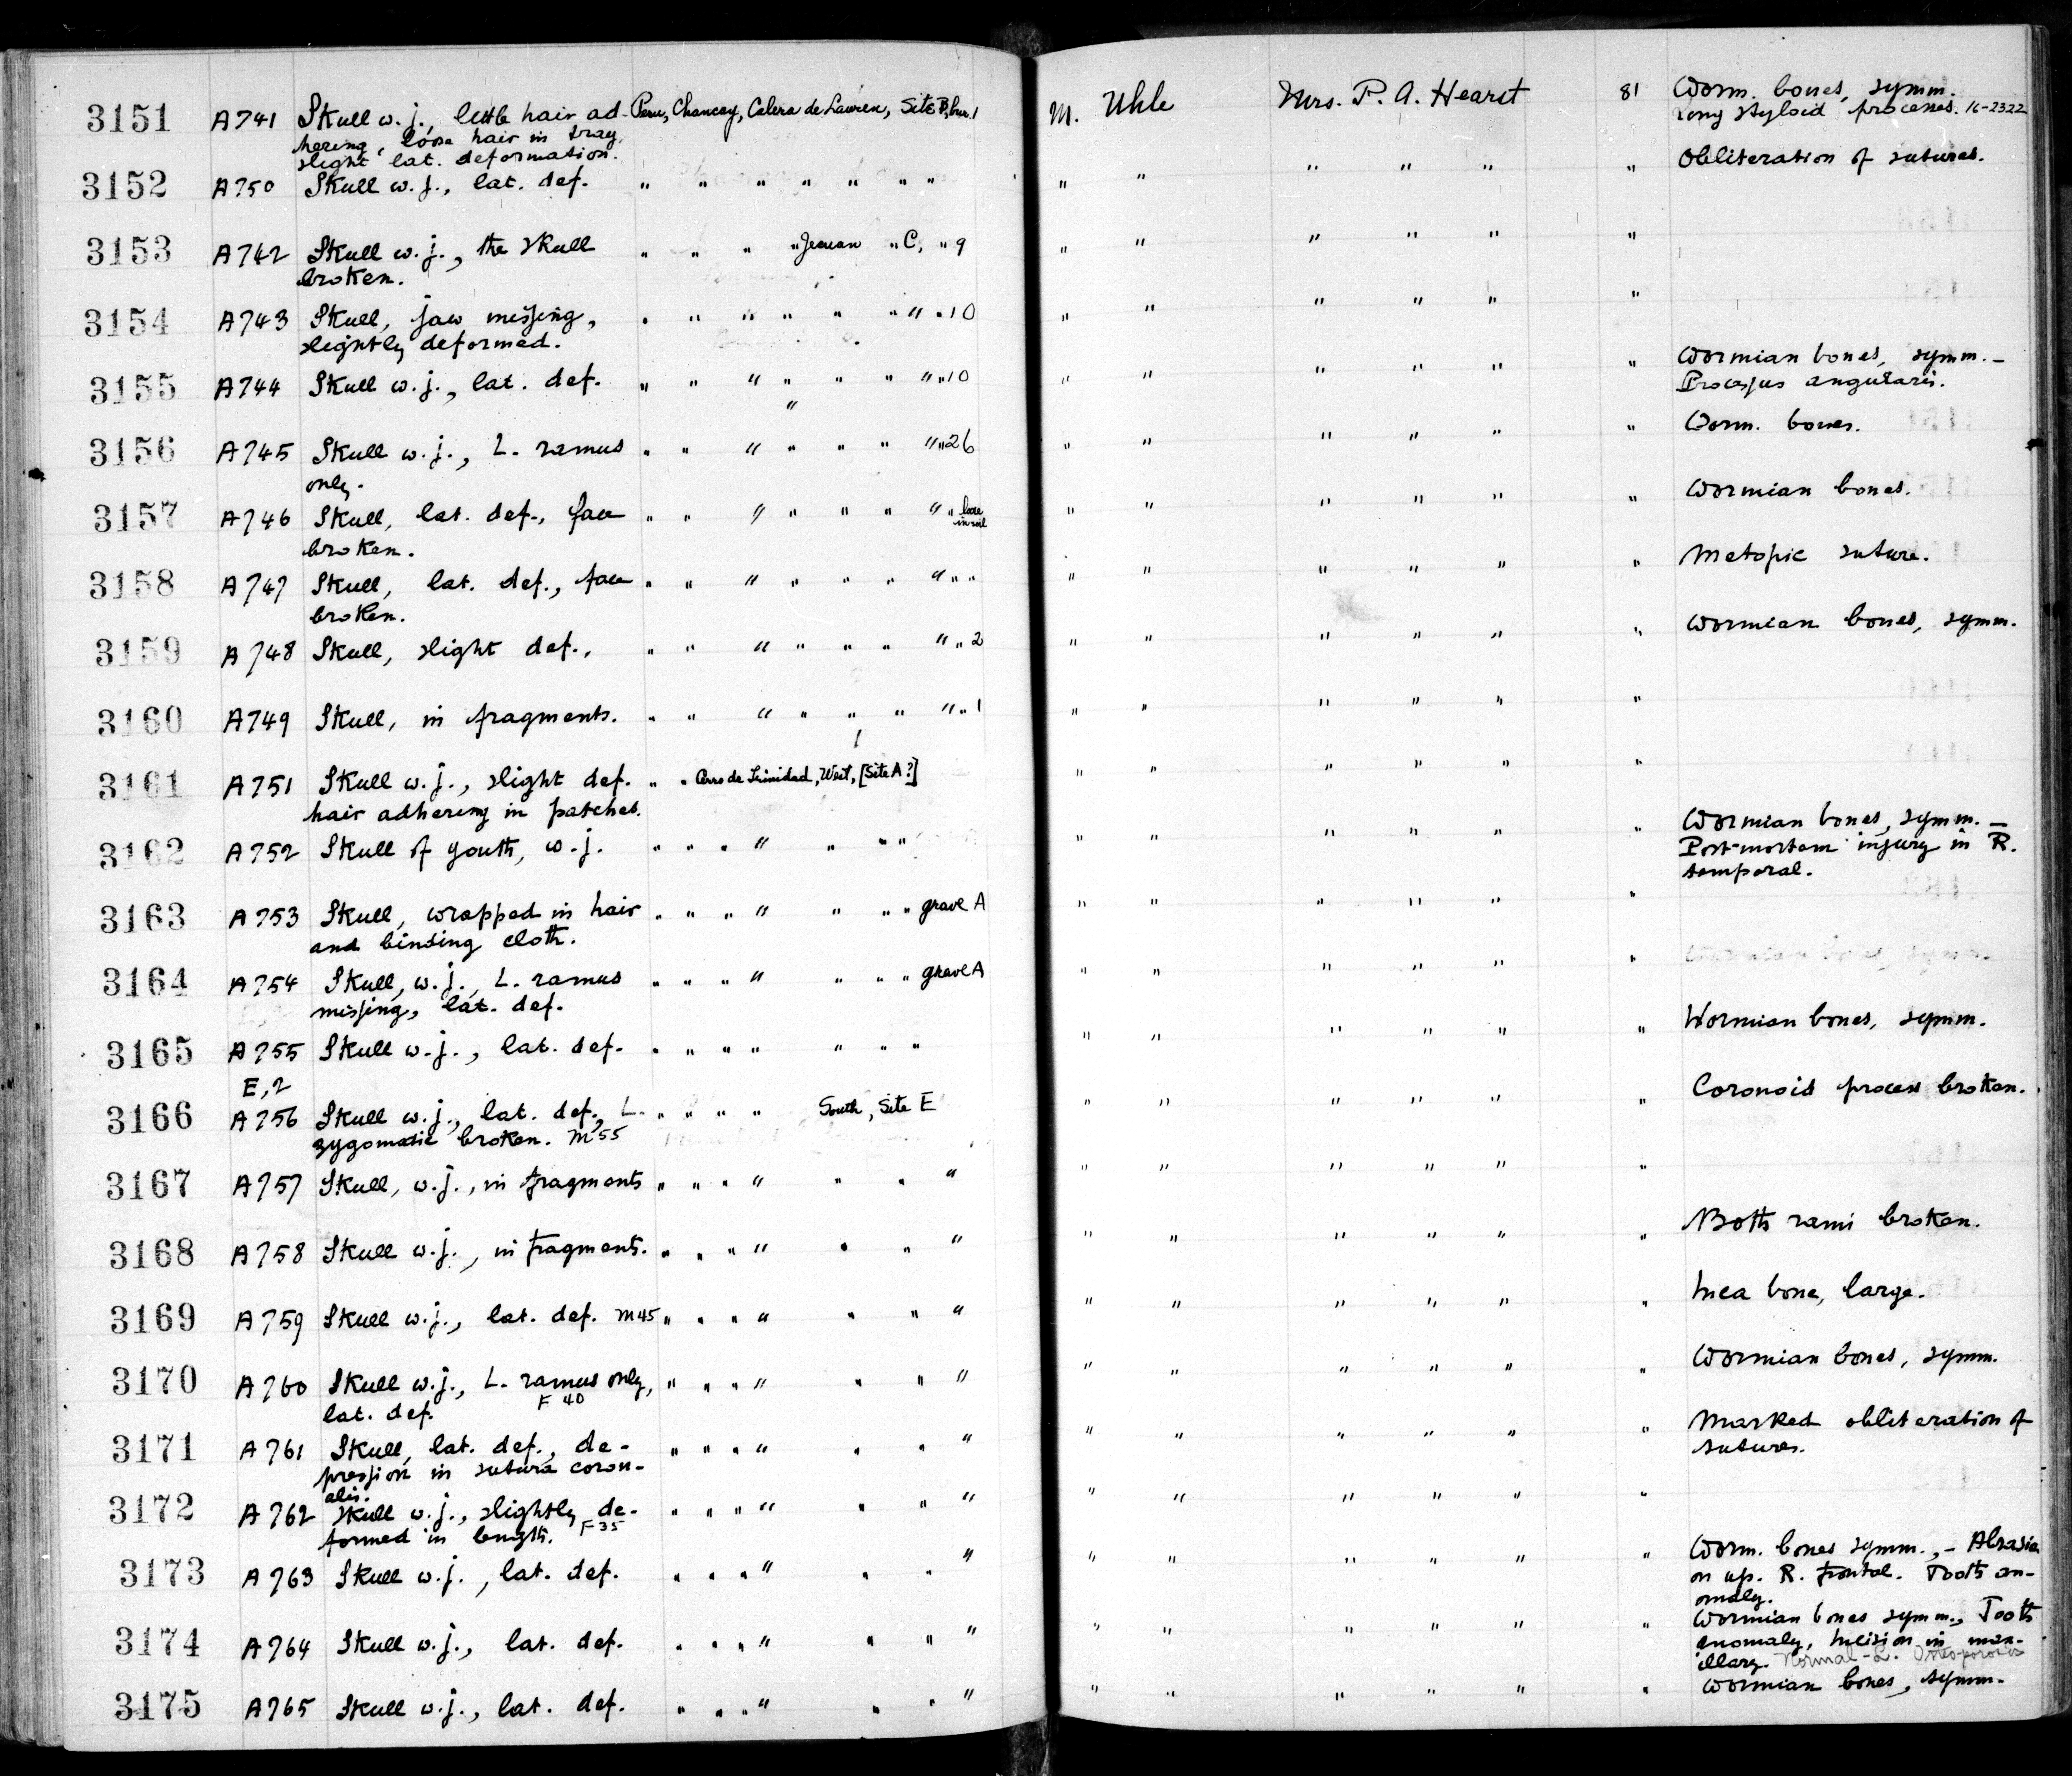 3151 A741 Skull w. j., little hair ad- Peru, Chancay, Calera de Lauren, Site B, bur. 1 M. Uhle Mrs. P. A. Hearst 81 Worm. bones, symm.
hering, loose hair in tray, Long styloid processes. 16-2322
slight lat. deformation.
3152 A750 Skull w. j., lat. def. " " " " " " " " " " " " " Obliteration of sutures.
3153 A742 Skull w. j., the skull " " " " Jecuan " C, " 9 " " " " " "
broken.
3154 A743 Skull, jaw missing, " " " " " " " " 10 " " " " " "
slightly deformed.
3155 A744 Skull w. j., lat. def. " " " " " " " " 10 " " " " " " Wormian bones, symm. –
" Processus angularis.
3156 A745 Skull w. j., L. ramus " " " " " " " " 26 " " " " " " Worm. bones.
only.
3157 A746 Skull, lat. def., face " " " " " " " " loose in soil " " " " " " Wormian bones.
broken.
3158 A747 Skull, lat. def., face " " " " " " " " " " " " " " " Metopic suture.
broken.
3159 A748 Skull, slight def., " " " " " " " " 2 " " " " " " Wormian bones, symm.
3160 A749 Skull, in fragments. " " " " " " " " 1 " " " " " "
3161 A751 Skull w. j., slight def. " " Cerro de Trinidad, West, [Site A?] " " " " " "
hair adhering in patches.
3162 A752 Skull of youth, w. j. " " " " " " " " " " " " " Wormian bones, symm. –
Post-mortem injury in R.
temporal.
3163 A753 Skull, wrapped in hair " " " " " " " grave A " " " " " "
and binding cloth.
3164 A754 Skull, w. j., L. ramus " " " " " " " grave A " " " " " "
missing, lat. def.
3165 A755 Skull w. j., lat. def. " " " " " " " " " " " " " Wormian bones, symm.
E, 2
3166 A756 Skull w. j., lat. def., L. " " " " South, Site E " " " " " " Coronoid process broken.
zygomatic broken. M55
3167 A757 Skull, w. j., in fragments " " " " " " " " " " " " "
3168 A758 Skull w. j., in fragments. " " " " " " " " " " " " " Both rami broken.
3169 A759 Skull w. j., lat. def. M45 " " " " " " " " " " " " " Inca bone, large.
3170 A760 Skull w. j., L. ramus only, " " " " " " " " " " " " " Wormian bones, symm.
lat. def. F 40
3171 A761 Skull, lat. def., de- " " " " " " " " " " " " " Marked obliteration of
pression in sutura coron- sutures.
alis.
3172 A762 Skull w. j., slightly de- " " " " " " " " " " " " "
formed in length. F35
3173 A763 Skull w. j., lat. def. " " " " " " " " " " " " " Worm. bones symm., – Abrasion
on up. R. frontal. Tooth an-
omaly.
3174 A764 Skull w. j., lat. def. " " " " " " " " " " " " " Wormian bones symm., Tooth
anomaly, Incision in max-
illary. Normal-L. Osteoporosis
3175 A765 Skull w. j., lat. def. " " " " " " " " " " " " " Wormian bones, symm.